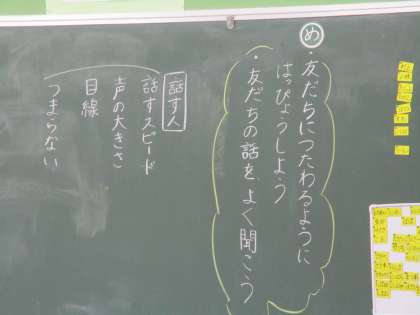 め
・友だちにつたわるように
はっぴょうしよう
・友だちの話を、よく聞こう
話す人
話すスピード
声の大きさ
目線
つまらない